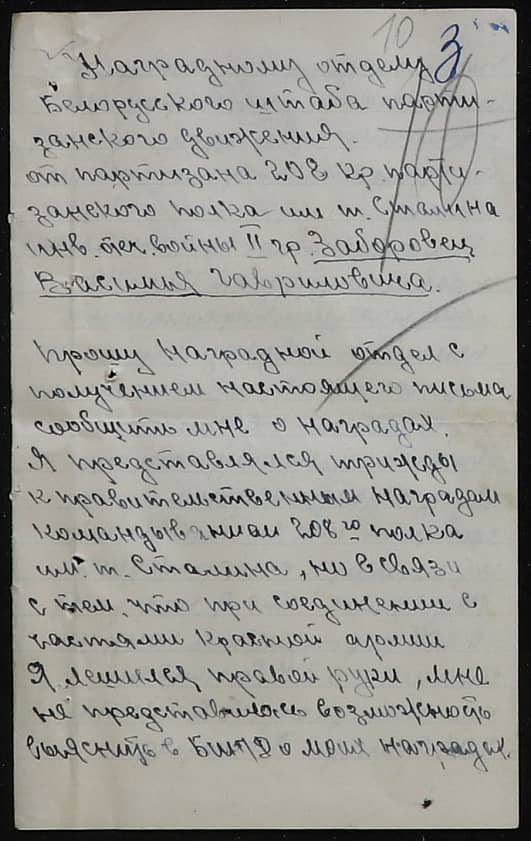 10 3
Наградному отделу
Белорусского штаба парти-
занского движения.
от партизана 208 кр. парти-
занского полка им т. Сталина
инв. отеч. войны II гр. Заборовец
Василия Гавриловича.
Прошу Наградной отдел с
получением настоящего письма
сообщить мне о наградах.
Я представлялся трижды
к правительственным наградам
командыванием 208го полка
им. т. Сталина, но в связи
с тем, что при соединении с
частями Красной армии
Я лешился правой руки, мне
не представилась возможность
выяснить в БШПД о моих наградах.